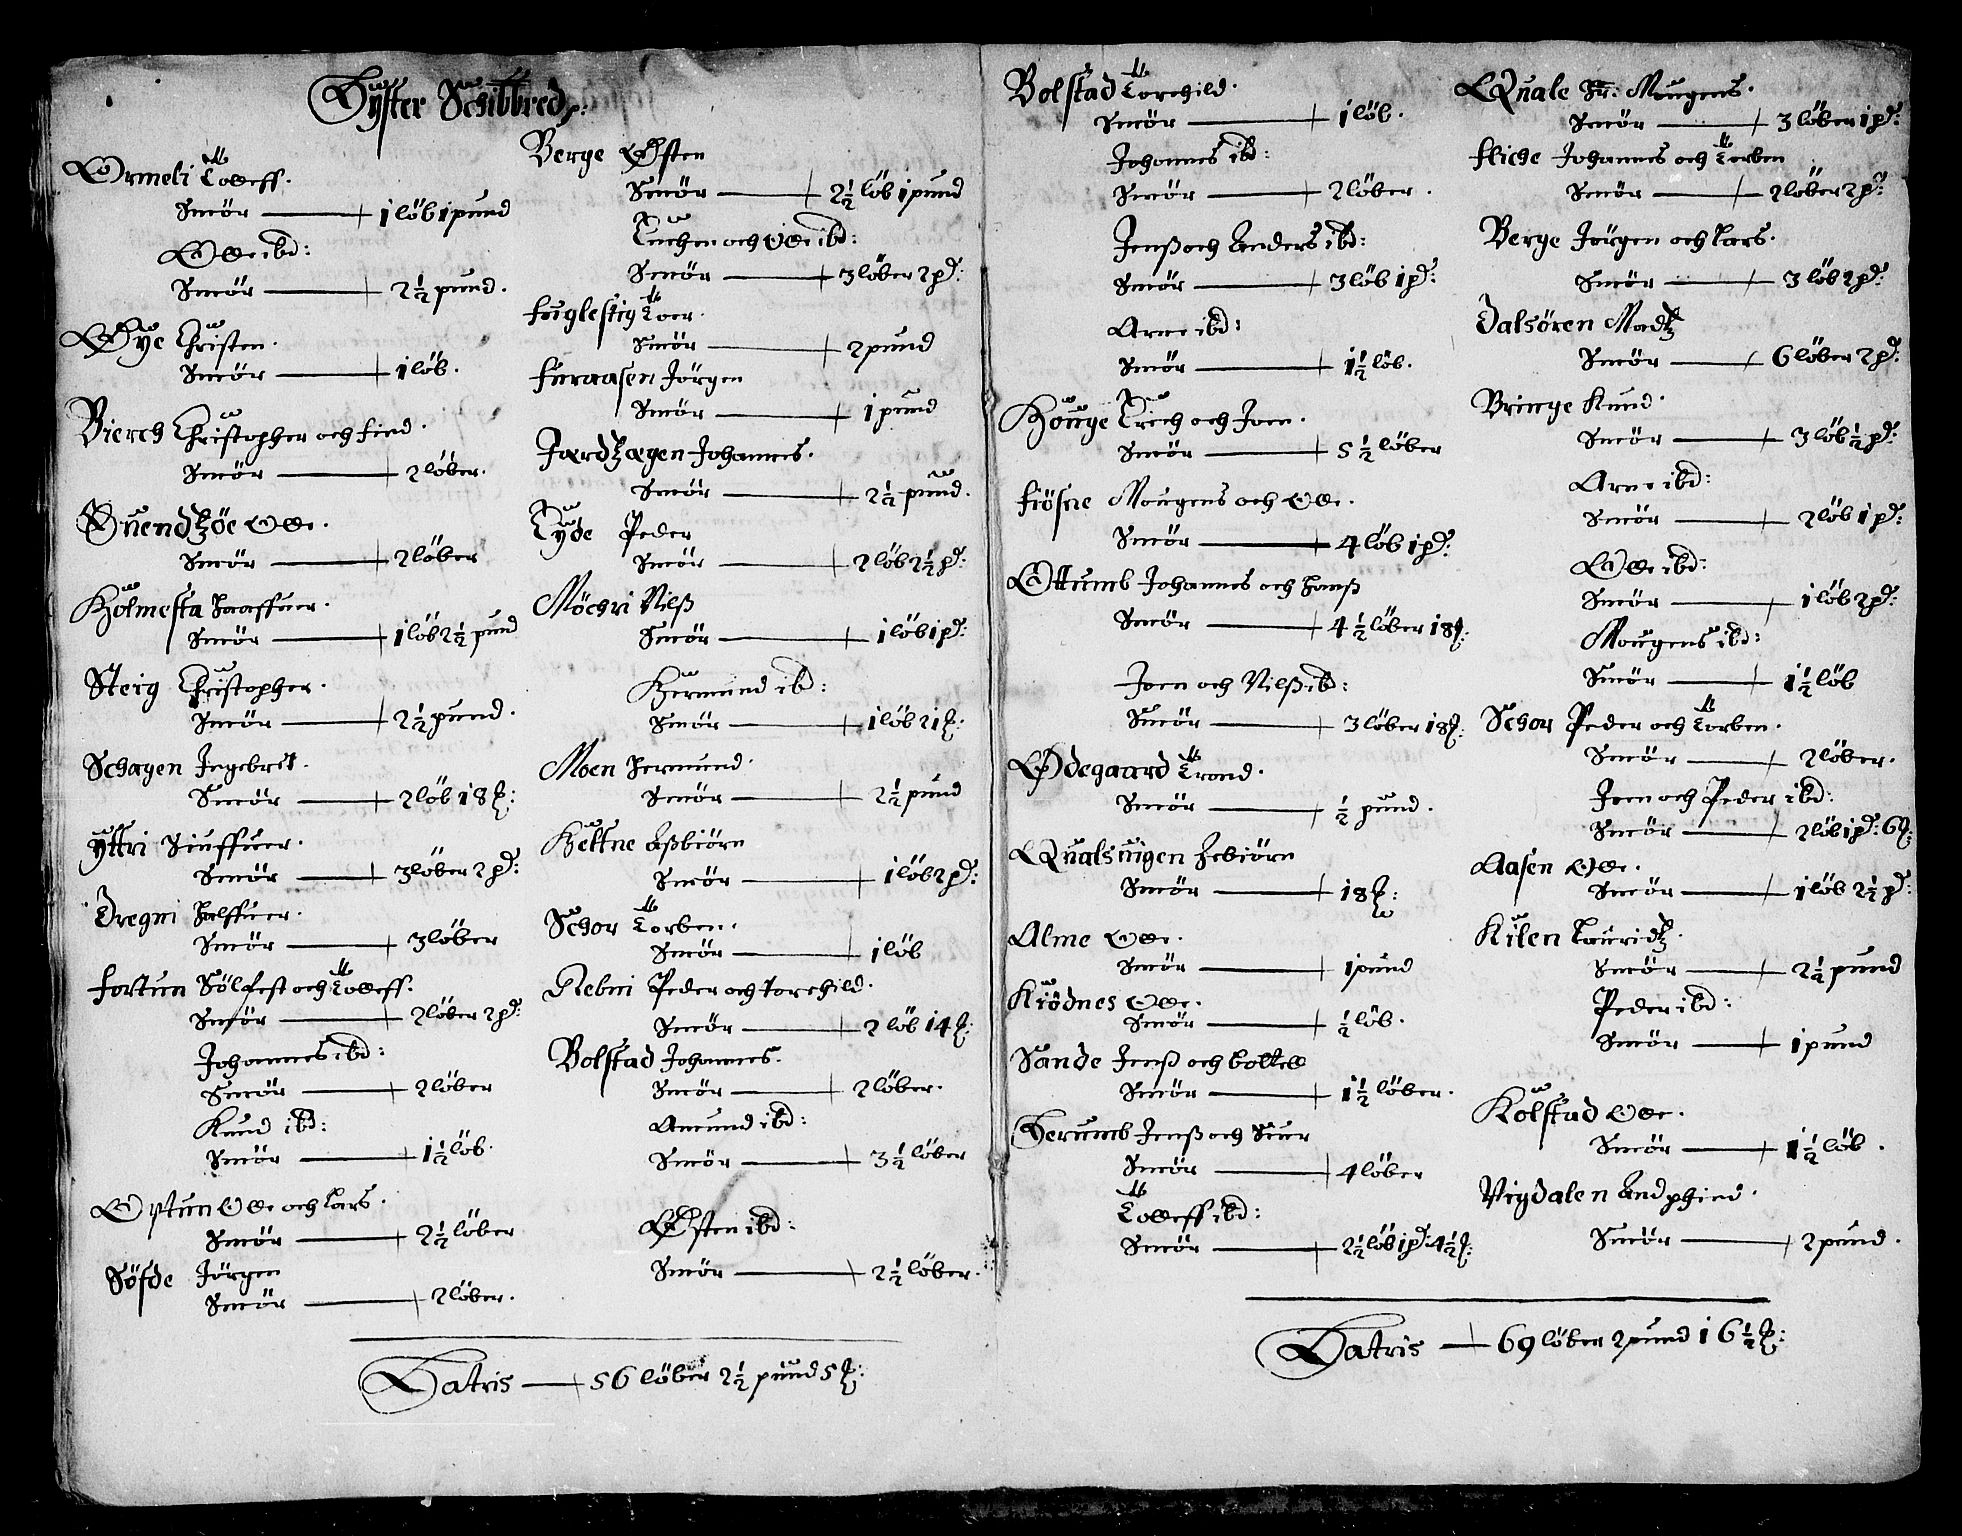 Lÿster Schibbred:
Ormeli Tolleff.
Smör — 1 löb 1 pund
Olle ibd:
Smör — 2½ pund.
Øÿe Christen.
Smör — 1 löb.
Bierch Christopher och Find.
Smör — 2 löber.
Quendtzöe Olle.
Smör — 2 löber
Holmesta Haaffuer.
Smör — 1 löb 2½ pund
Steig Christopher.
Smör — 2½ pund.
Schagen Ingebret.
Smör — 2 löb 18 ℔:
Ÿttri Siuffuer.
Smör — 3 löber 2 pd:
Dregni Halffuer.
Smör — 3 löber
Fortun Sölfest och Tolleff.
Smör — 2 löber 2 pd:
Johannes ibd:
Smör — 2 löber
Knud ibd:
Smör — 1½ löb.
Optun Olle och Lars.
Smör — 2½ löber
Söfde Jörgen
Smör — 2 löber.
Berge Østen
Smör — 2½ löb 1 pund
Tuchen och Olle ibd:
Smör — 3 löber 2 pd:
Fuglestig Toer.
Smör — 2 pund
Furaasen Jörgen
Smör — 1 pund
Jardtzagen Johannes.
Smör — 2½ pund.
Tÿde Peder
Smör — 2 löb 2½ pd:
Möchri Nilß
Smör — 1 löb 1 pd:
Hermund ibd:
Smör — 1 löb 21 ℔:
Moen Hermund.
Smör — 2½ pund
Hettne Aßbiörn
Smör — 1 löb 2 pd:
Schor Torben.
Smör — 1 löb
Nebni Peder och Torchild.
Smör — 2 löb 14 ℔:
Bolstad Johannes.
Smör — 2 löber.
Amund ibd:
Smör — 3½ löber
Østen ibd:
Smör — 2½ löber.
Latris — 56 löber 2½ pund 5 ℔:
Bolstad Torchild.
Smör — 1 löb.
Johannes ibd:
Smör — 2 löber.
Jenß och Anders ibd:
Smör — 3 löb 1 pd:
Arne ibd:
Smör — 1½ löb.
Houge Erich och Joen.
Smör — 5½ löber
Fiösne Mougens och Olle.
Smör — 4 löb 1 pd:
Ottumb Johannes och Hanß
Smör — 4½ löber 18 ℔:
Joen och Nilß ibd:
Smör — 3 löber 18 ℔:
Ødegaard Trond.
Smör — ½ pund.
Qualsuigen Esbiörn
Smör — 18 ℔:
Alme Olle.
Smör — 1 pund
Kiödnes Olle.
Smör — ½ löb.
Sande Jenß och Bottell
Smör — 1½ löber.
Herumb Jenß och Siur
Smör — 4 löber
Tolleff ibd:
Smör — 2½ löb 1 pd: 4½ ℔:
Quale Hr: Mougens.
Smör — 3 löber 1 pd:
Fliche Johannes och Torben
Smör — 2 löber 2 pd:
Berge Jörgen och Lars.
Smör — 3 löb 2 pd:
Dalsören Madtz
Smör — 6 löber 2 pd:
Bringe Knud.
Smör — 3 löb ½ pd:
Arne ibd:
Smör — 2 löb 1 pd:
Olle ibd:
Smör — 1 löb 2 pd:
Mougens ibd:
Smör — 1½ löb
Schor Peder och Torben.
Smör — 2 löber.
Joen och Peder ibd:
Smör — 2 löb 1 pd: 6 ℔:
Aasen Olle.
Smör — 1 löb 2½ pd:
Kilen Lauridtz.
Smör — 2½ pund
Peder ibd:
Smör — 1 pund
Kolstad Olle.
Smör — 1½ löb.
Vigdalen Andphind.
Smör — 2 pund.
Latris — 69 löber 2 pund 16½ ℔: